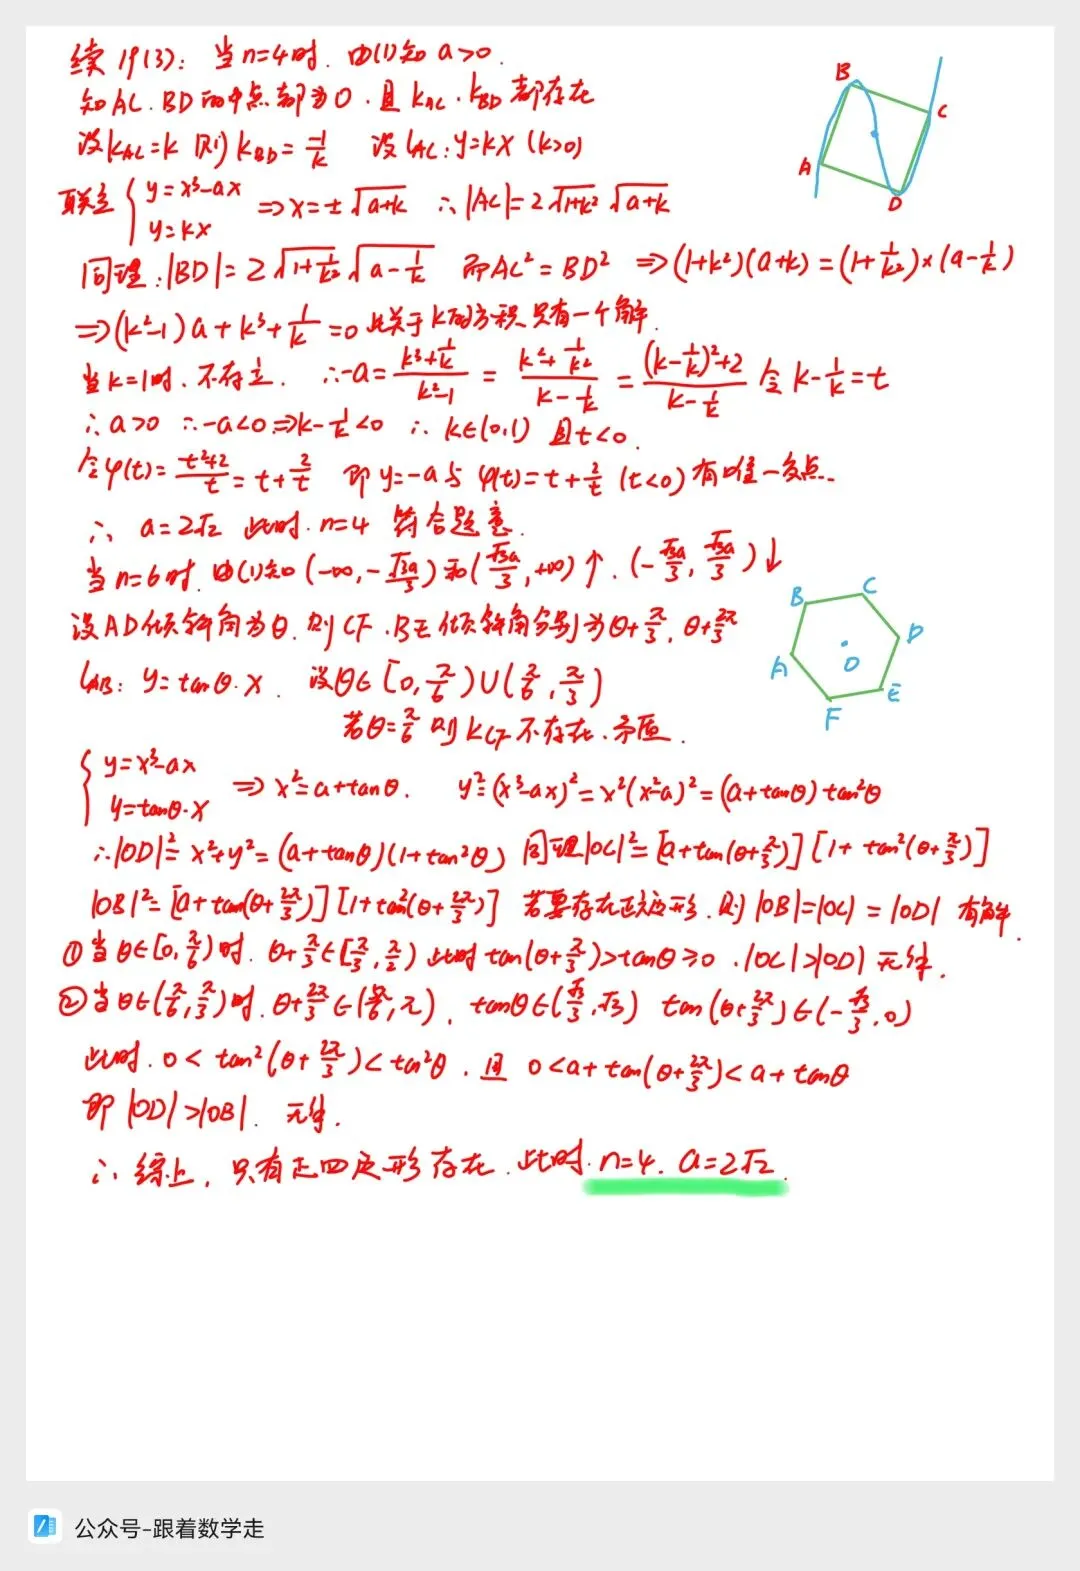 续19(3): 当n=4时. 由(1)知 a>0.
知AC.BD的中点都为O.且 k_AC.k_BD 都存在
设k_AC=k 则 k_BD=-1/k 设l_AC:y=kx (k>0)
联立{y=x³-ax y=kx ⇒x=±√(a+k) ∴|AC|=2√(1+k²)√(a+k)
同理:|BD|=2√(1+1/k²)√(a-1/k) 而AC²=BD² ⇒(1+k²)(a+k)=(1+1/k²)×(a-1/k)
⇒(k²-1)a+k³+1/k=0 此关于k的方程只有一个解.
当k=1时.不存立. ∴-a=(k³+1/k)/(k²-1)=(k²+1/k²)/(k-1/k)=((k-1/k)²+2)/(k-1/k) 令k-1/k=t
∴a>0 ∴-a<0⇒k-1/k<0 ∴k∈(0,1) 且t<0.
令φ(t)=(t²+2)/t=t+2/t 即y=-a与φ(t)=t+2/t (t<0)有唯一交点.
∴ a=2√2 此时.n=4 符合题意.
当n=6时.由(1)知(-∞,-√3a/3)和(√3a/3,+∞)↑.(-√3a/3,√3a/3)↓
设AD倾斜角为θ.则CF.BE倾斜角分别为θ+π/3,θ+2π/3
l_AB: y=tanθ·x. 设θ∈[0,π/6)∪(π/6,π/3)
若θ=π/6 则k_CF不存在.矛盾.
{y=x³-ax y=tanθ·x ⇒x²=a+tanθ. y²=(x³-ax)²=x²(x²-a)²=(a+tanθ)tan²θ
∴|OD|²=x²+y²=(a+tanθ)(1+tan²θ) 同理|OC|²=[a+tan(θ+π/3)][1+tan²(θ+π/3)]
|OB|²=[a+tan(θ+2π/3)][1+tan²(θ+2π/3)] 若要存在正六边形.则|OB|=|OC|=|OD| 有解.
①当θ∈[0,π/6)时.θ+π/3∈[π/3,π/2) 此时tan(θ+π/3)>tanθ≥0.|OC|>|OD| 无解.
②当θ∈(π/6,π/3)时.θ+2π/3∈(5π/6,π). tanθ∈(√3/3,√3) tan(θ+2π/3)∈(-√3/3,0)
此时.0<tan²(θ+2π/3)<tan²θ.且 0<a+tan(θ+2π/3)<a+tanθ
即|OD|>|OB|. 无解.
∴综上,只有正四边形存在.此时.n=4. a=2√2.
B
C
A
D
B
C
A
D
O
E
F
公众号-跟着数学走